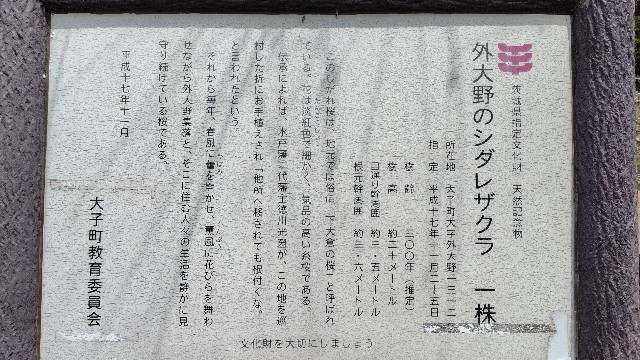 茨城県指定文化財 天然記念物
外大野のシダレザクラ 一株
所在地 大子町大字外大野一三一二
指定 平成十七年十一月二十五日
樹齢 三〇〇年(推定)
樹高 約二十メートル
目通り幹周囲 約三・五メートル
根元幹周囲 約三・六メートル
このしだれ桜は、地元では俗に「下大倉の桜」と呼ばれ
ている。花は淡紅色で細かく、気品の高い糸桜である。
伝承によれば、水戸藩二代藩主徳川光圀が、この地を巡
村した折にお手植えされ「他所へ移されても根付くな。」
と言われたという。
それから毎年、春風に蕾を膨かせ、薫風に花びらを舞わ
せながら外大野集落と、そこに住む人々の生活を静かに見
守り続けている桜である。
平成十七年十一月
大子町教育委員会
文化財を大切にしましょう